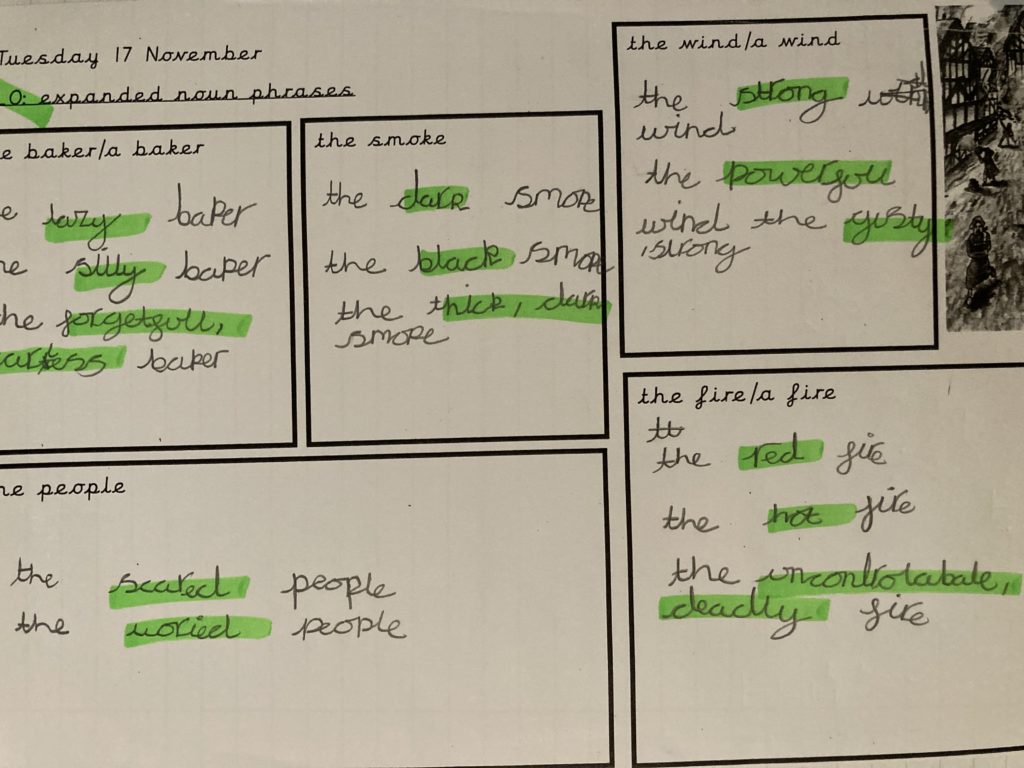 Tuesday 17 November
O: expanded noun phrases
e baker/a baker
e lazy baker
he silly baker
the forgetfull,
baker
the smoke
the dark smoke
the black smoke
the thick, dark
smoke
the wind/a wind
the strong
wind
the powerfull
wind the gusty
,strong
the fire/a fire
tt
the red fire
the hot fire
the uncontrolabale,
deadly fire
he people
the scared people
the woried people